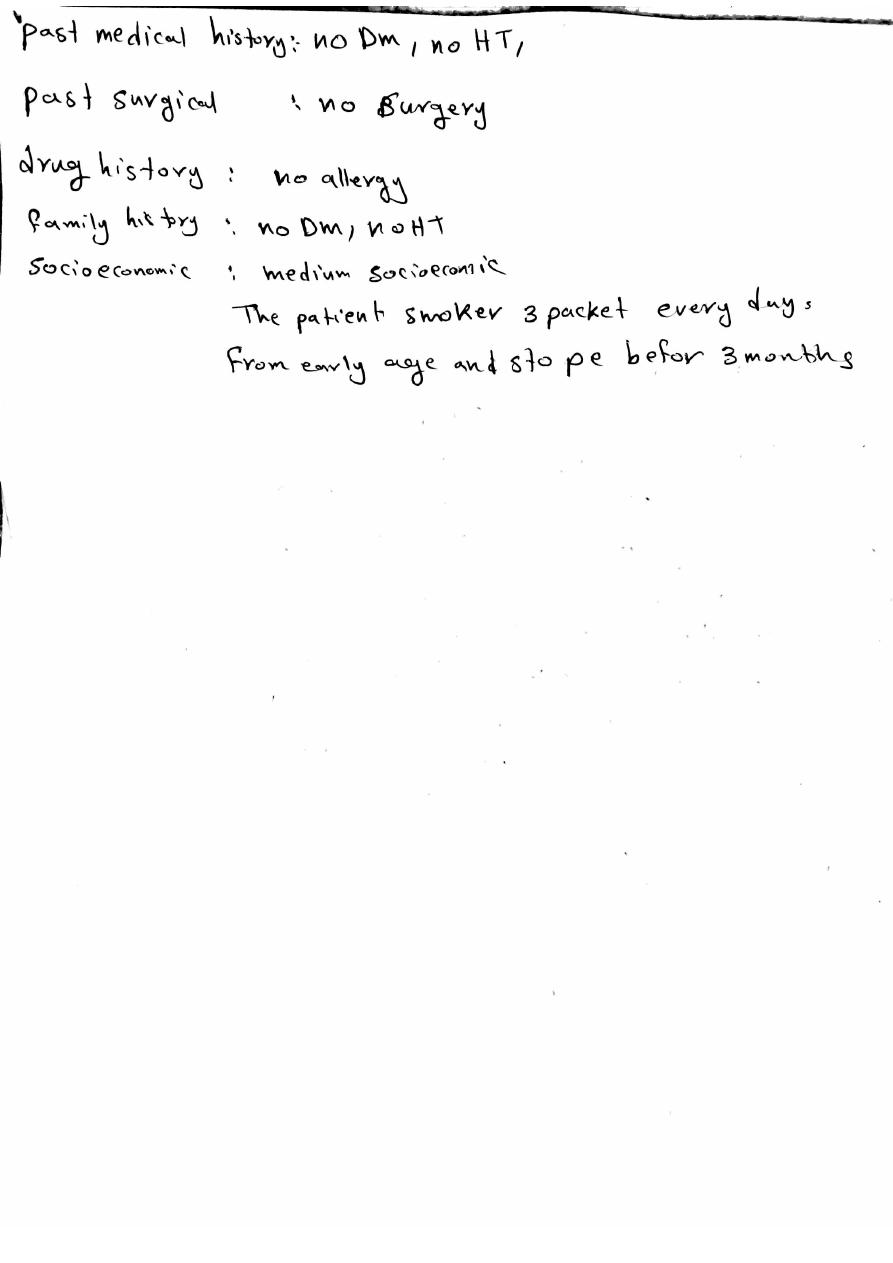 past medical history: no Dm, no HT,
past surgical : no Surgery
drug history : no allergy
family history : no Dm, no HT
Socioeconomic : medium socioecomic
The patient smoker 3 packet every days
from early age and stope befor 3 months